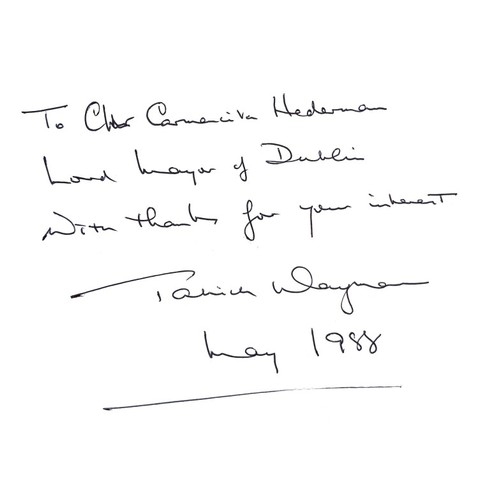 To Cllr Carmencita Hederman
Lord Mayor of Dublin
With thanks for your interest
Patrick Wayman
May 1988